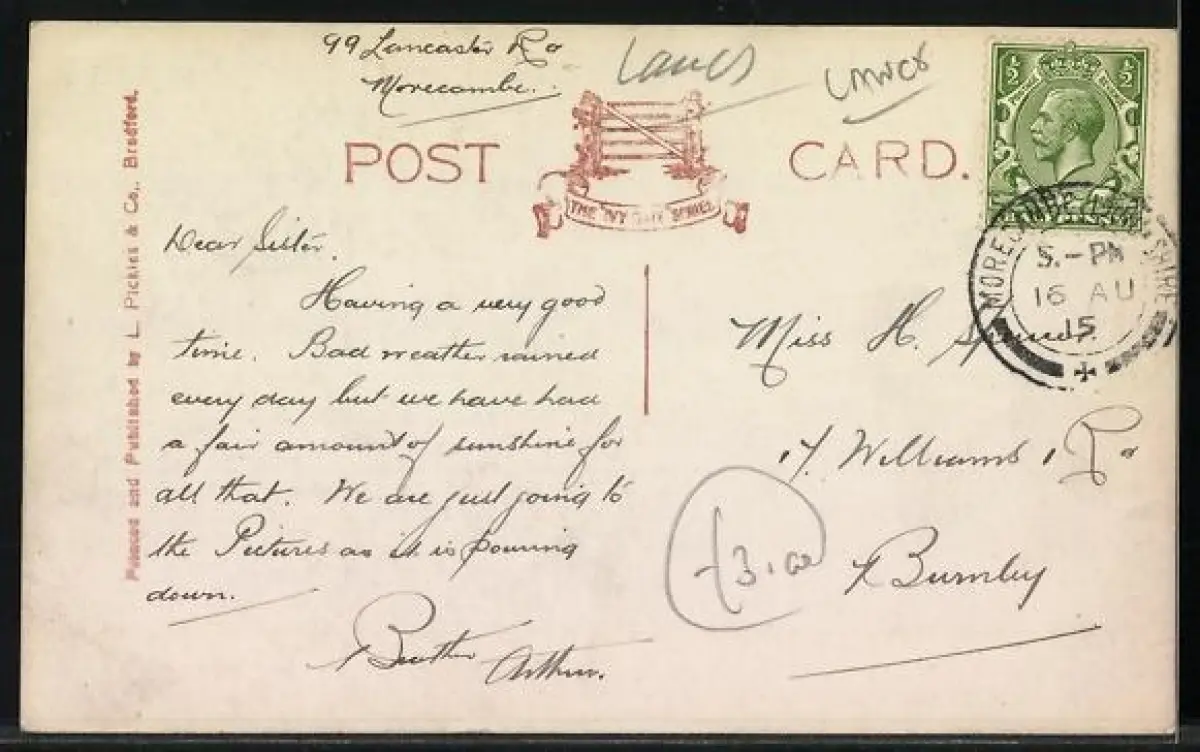 99 Lancaster Rd
Morecambe.
Lancs
POST CARD.
THE IVY SERIES
½ ½
MORECAMBE
5.-PM
16 AU
15
SHIRE
Printed and Published by L. Pickles & Co., Bradford.
Dear Sister,
Having a very good
time. Bad weather rained
every day but we have had
a fair amount of sunshine for
all that. We are just going to
the Pictures as it is pouring
down.
Brother Arthur.
Miss H.
Williams Rd
Burnley
£3.00